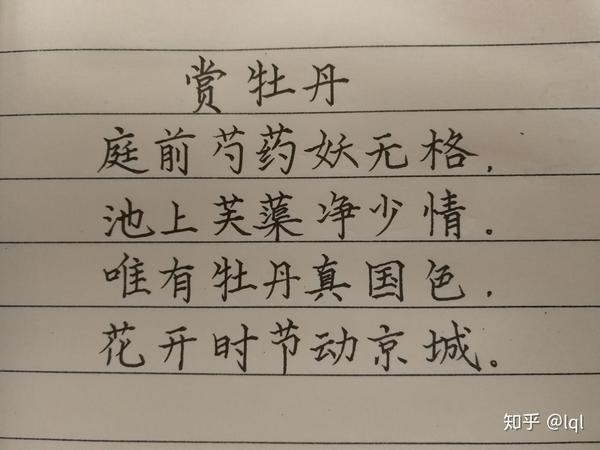 赏牡丹
庭前芍药妖无格,
池上芙蕖净少情。
唯有牡丹真国色,
花开时节动京城。
知乎 @lql